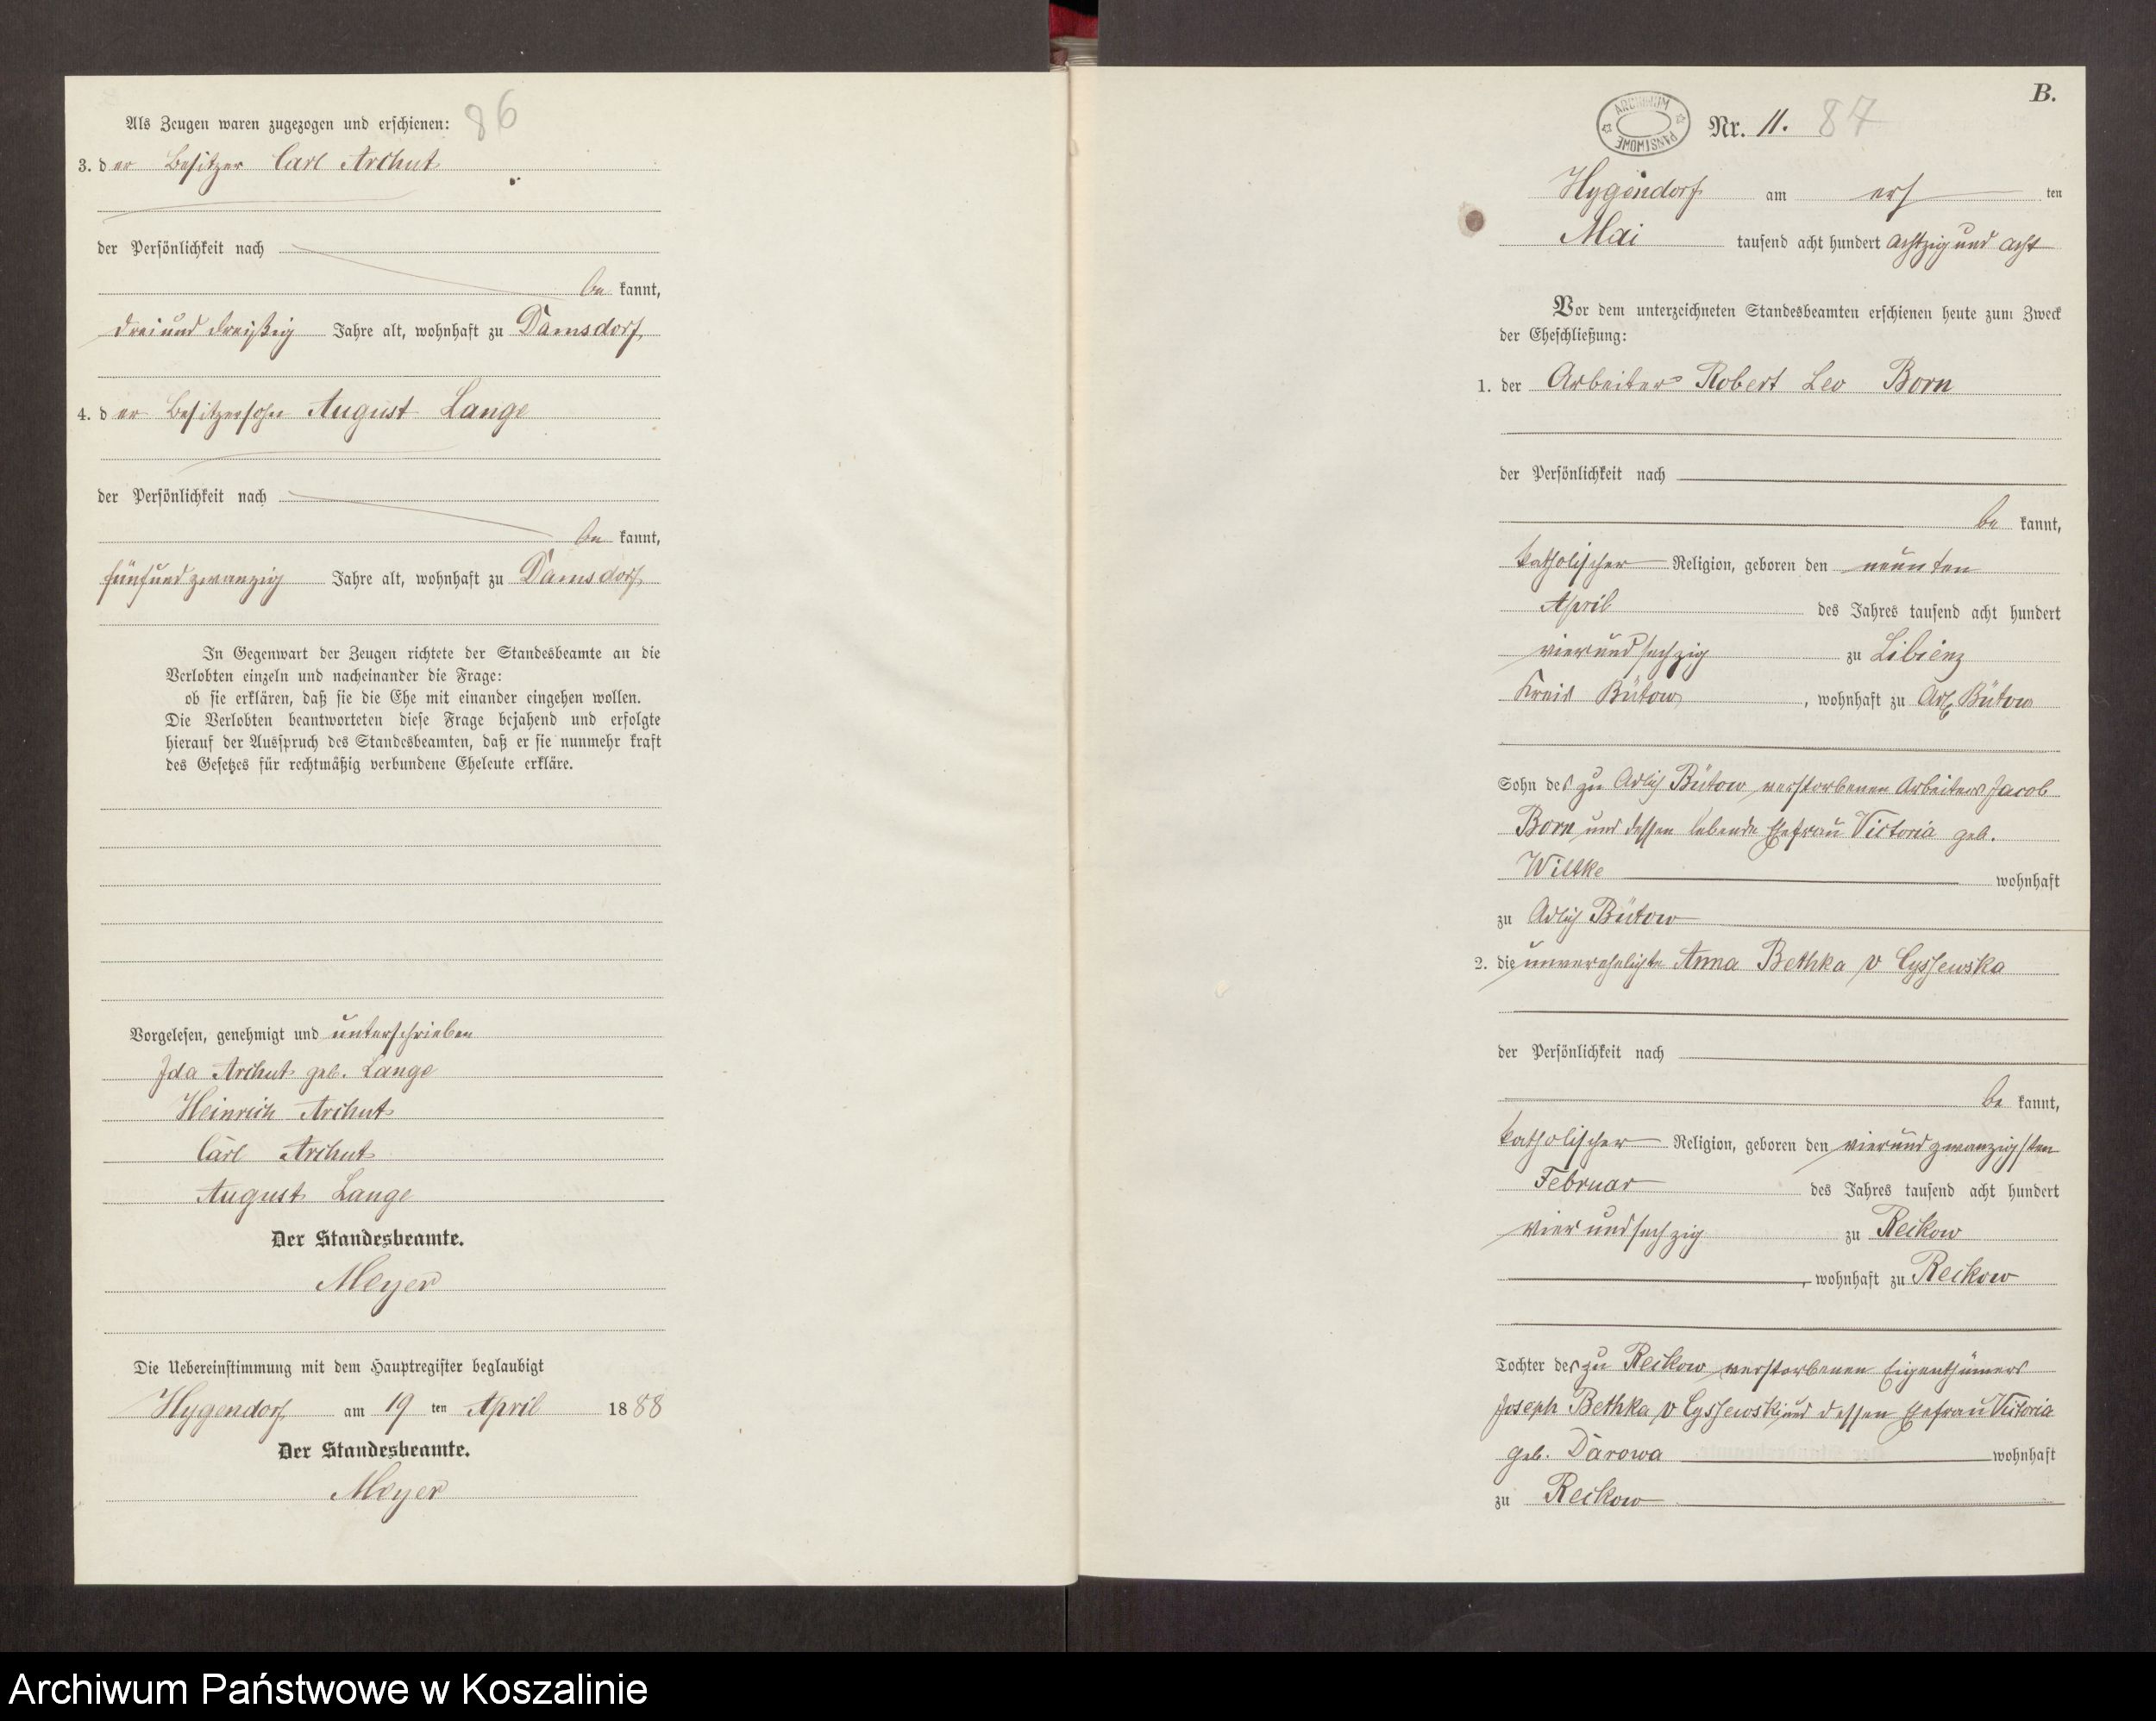 86
Als Zeugen waren zugezogen und erschienen:
3. der Besitzer Carl Archut
der Persönlichkeit nach
be kannt,
dreiunddreißig Jahre alt, wohnhaft zu Damsdorf
4. der Besitzersohn August Lange
der Persönlichkeit nach
be kannt,
fünfundzwanzig Jahre alt, wohnhaft zu Damsdorf
In Gegenwart der Zeugen richtete der Standesbeamte an die
Verlobten einzeln und nacheinander die Frage:
ob sie erklären, daß sie die Ehe mit einander eingehen wollen.
Die Verlobten beantworteten diese Frage bejahend und erfolgte
hierauf der Ausspruch des Standesbeamten, daß er sie nunmehr kraft
des Gesetzes für rechtmäßig verbundene Eheleute erkläre.
Vorgelesen, genehmigt und unterschrieben
Ida Archut geb. Lange
Heinrich Archut
Carl Archut
August Lange
Der Standesbeamte.
Meyer
Die Uebereinstimmung mit dem Hauptregister beglaubigt
Hygendorf am 19 ten April 1888
Der Standesbeamte.
Meyer
B.
ARCHIWUM PAŃSTWOWE
Nr. 11. 87
Hygendorf am ersten
Mai tausend acht hundert achtzig und acht
Vor dem unterzeichneten Standesbeamten erschienen heute zum Zweck
der Eheschließung:
1. der Arbeiter Robert Leo Born
der Persönlichkeit nach
be kannt,
katholischer Religion, geboren den neunten
April des Jahres tausend acht hundert
vierundsechzig zu Libienz
Kreis Bütow, wohnhaft zu Adl Bütow
Sohn des zu Adlich Bütow verstorbenen Arbeiters Jacob
Born und dessen lebende Ehefrau Victoria geb.
Wiltke wohnhaft
zu Adlich Bütow
2. die unverehelichte Anna Bethka v Cyssewska
der Persönlichkeit nach
be kannt,
katholischer Religion, geboren den vierundzwanzigsten
Februar des Jahres tausend acht hundert
vierundsechzig zu Reckow
, wohnhaft zu Reckow
Tochter des zu Reckow verstorbenen Eigenthümers
Joseph Bethka v Cyssewski und dessen Ehefrau Victoria
geb. Darowa wohnhaft
zu Reckow
Archiwum Państwowe w Koszalinie